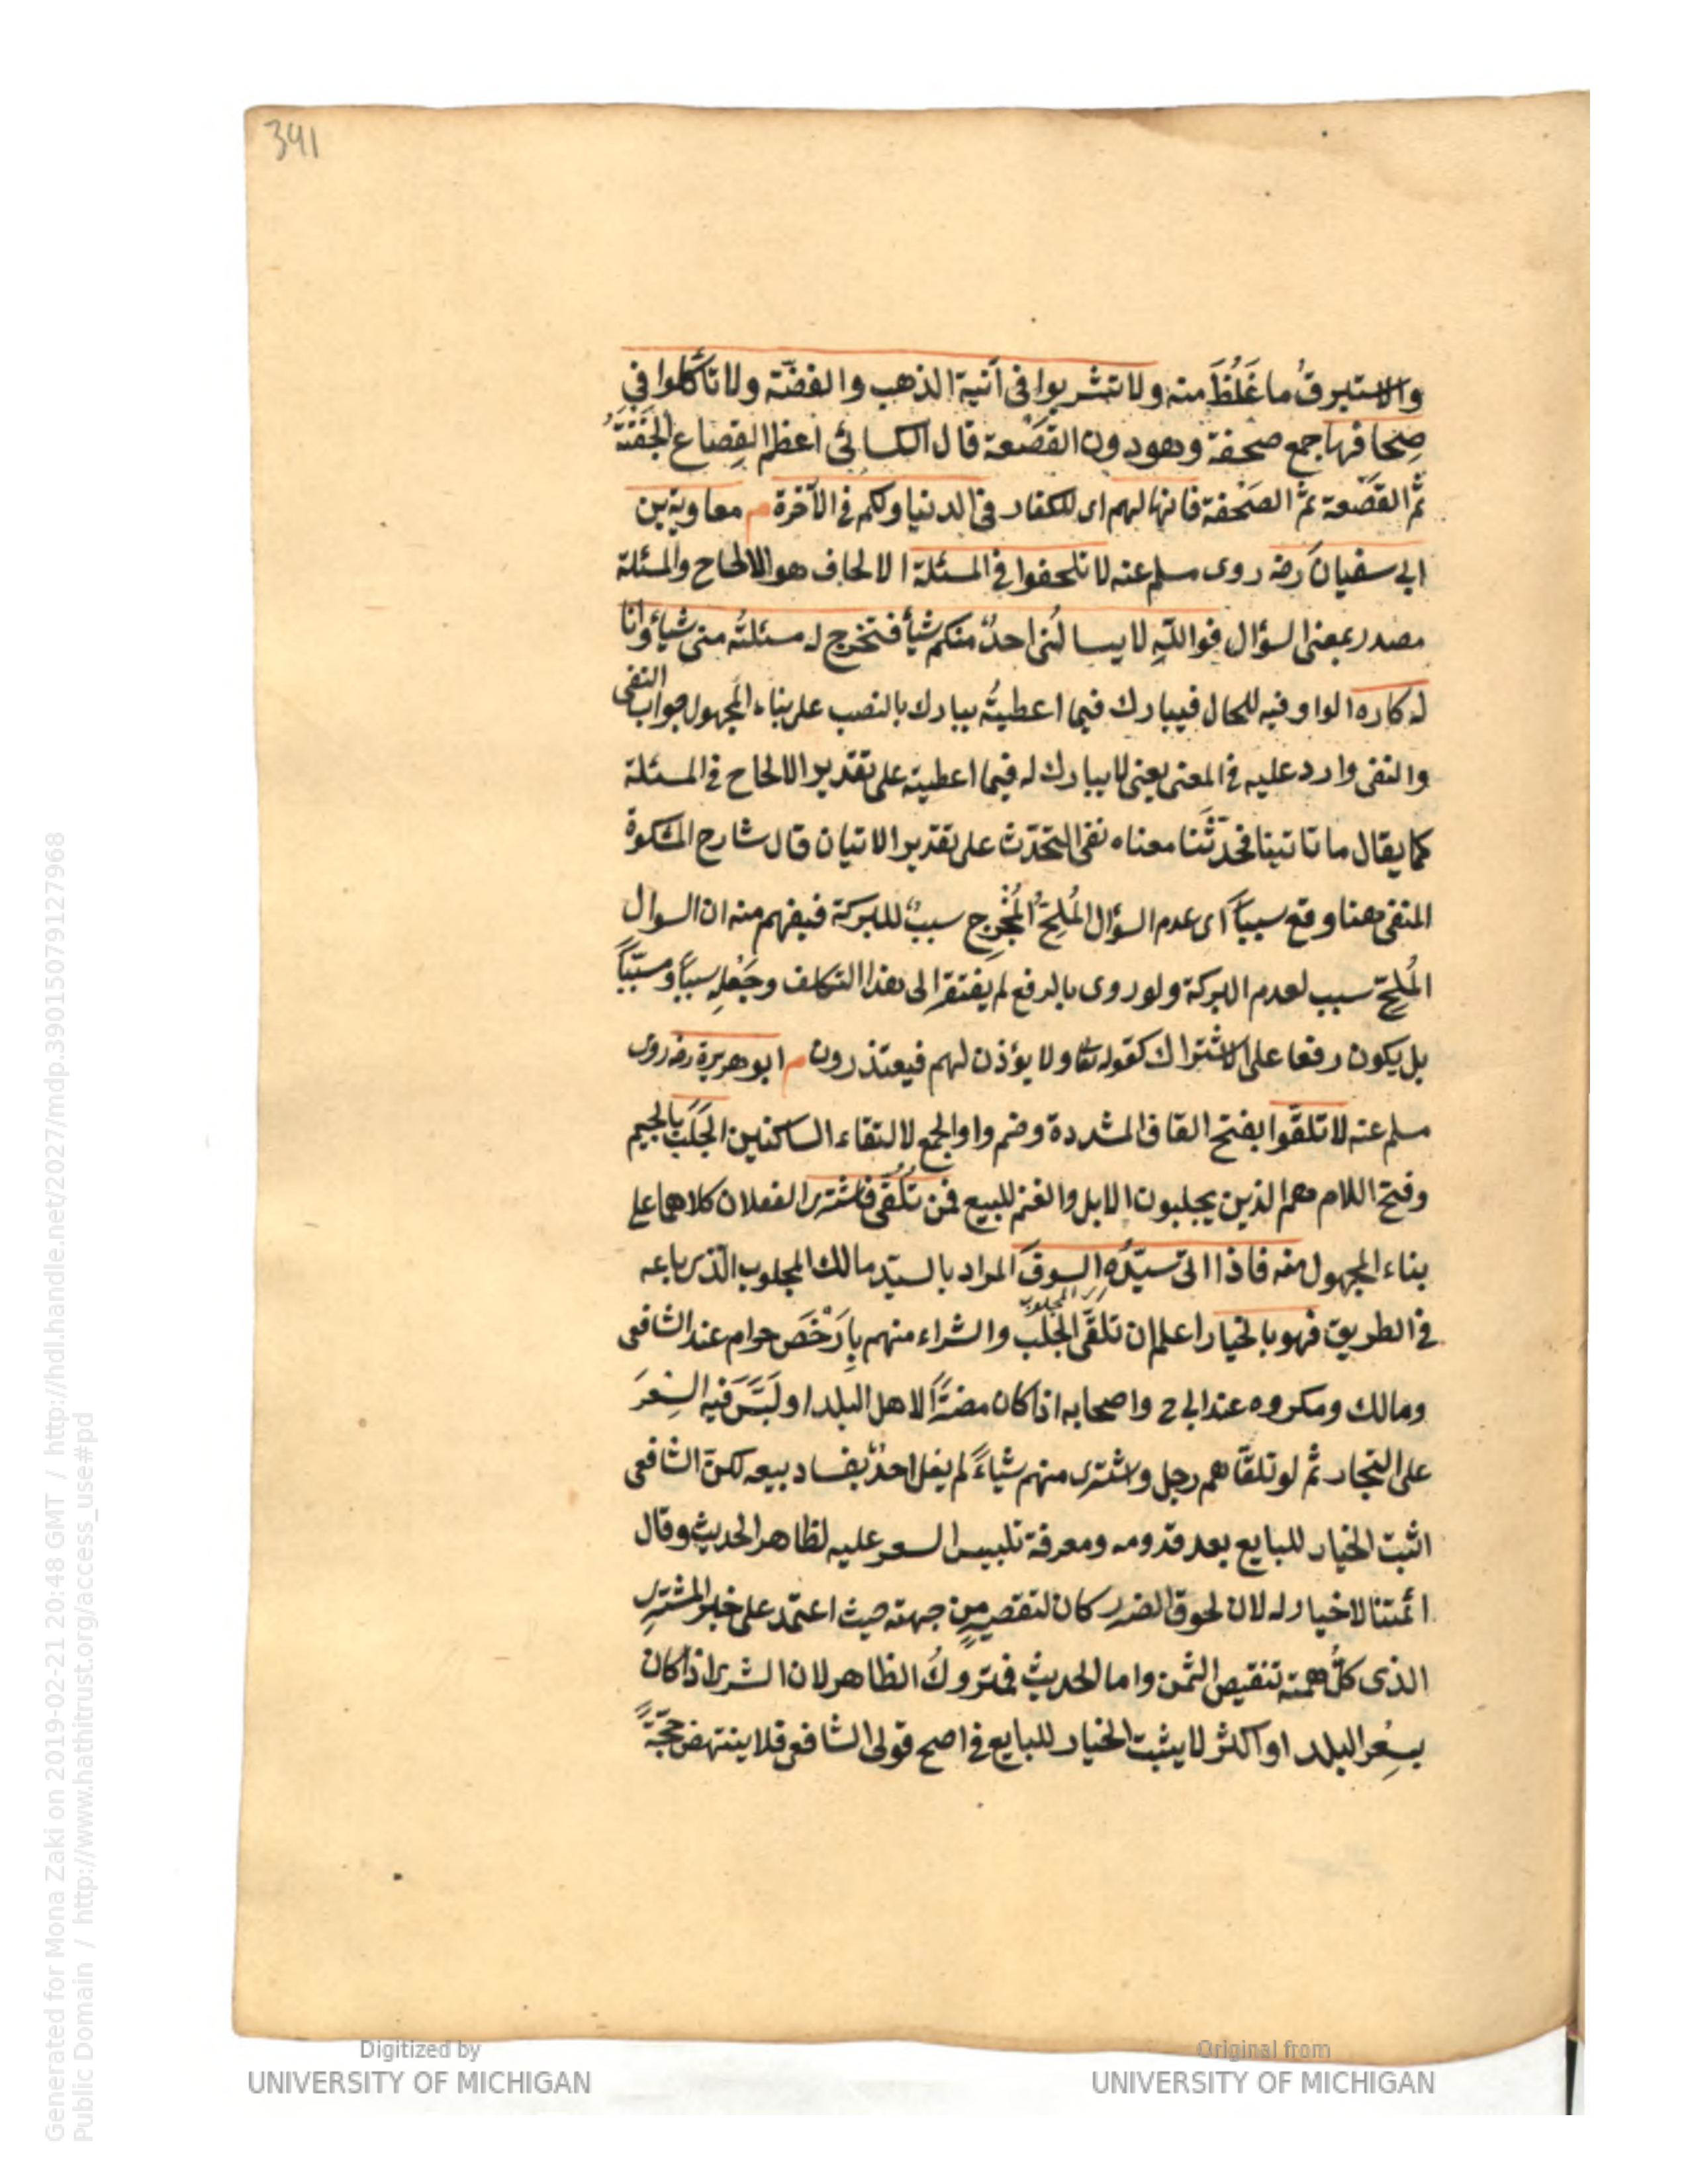 391
والاستبرقُ ما غَلُظَ منه ولا تشربوا فى آنية الذهب والفضّة ولا تأكلوا في
صِحافها جمع صحفة وهو دون القَصْعة قال الكسائى اعظم القِصاع الجَفْنَةُ
ثمّ القَصْعة ثمّ الصَحْفة فانها لهم اى للكفار فى الدنيا ولكم فى الآخرة م معاوية بن
ابى سفيان رضه روى مسلم عنه لا تلحفوا فى المسئلة الالحاف هو الالحاح والمسئلة
مصدر بمعنى السؤال فوالله لا يسالُنى احدٌ منكم شيأً فتخرج له مسئلتُه منى شيأً وانا
له كاره الواو فيه للحال فيبارك فيما اعطيتُه يبارك بالنصب على بناء المجهول جواب النفى
والنفى وارد عليه فى المعنى يعنى لا يبارك له فيما اعطيته على تقدير الالحاح فى المسئلة
كما يقال ما تاتينا فتحدّثَنا معناه نفى التحدّث على تقدير الاتيان قال شارح المشكوة
المنفى ههنا وقع سبباً اى عدم السؤال المُلِحّ المُخْرِج سببٌ للبركة فيفهم منه ان السوال
المُلِحّ سبب لعدم البركة ولو روى بالرفع لم يفتقر الى هذا التكلف وجَعْلِه سبباً ومسبَّباً
بل يكون رفعا على الاشتراك كقوله تعا ولا يؤذن لهم فيعتذرون م ابو هريرة رضه روى
مسلم عنه لا تلقَّوا بفتح القاف المشددة وضم واو الجمع لالتقاء الساكنين الجَلَبَ بالجيم
وفتح اللام هم الذين يجلبون الابل والغنم للبيع فمن تُلُقّى فاشترى الفعلان كلاهما على
بناء المجهول منه فاذا اتى سيّدُه السوقَ المراد بالسيّد مالك المجلوب الّذى باعه
فى الطريق فهو بالخيار اعلم ان تلقّى الجلَب المجلوب والشراء منهم بِاَرْخَصَ حرام عند الشافعى
ومالك ومكروه عند ابى ح واصحابه اذا كان مضرّاً لاهل البلد او لَبَّسَ فيه السِعرَ
على التجار ثمّ لو تلقّاهم رجل واشترى منهم شياءً لم يقل احدٌ بفساد بيعه لكن الشافعى
اثبت الخيار للبايع بعد قدومه ومعرفة تلبيس السعر عليه لظاهر الحديث وقال
ائمتنا لا خيار له لان لحوق الضرر كان لتقصيرٍ من جهته حيث اعتمد على خبر المشترى
الذى كلّ همته تنقيص الثمن واما الحديث فمتروكُ الظاهر لان الشرى اذا كان
بسِعْر البلد او اكثر لا يثبت الخيار للبايع فى اصح قولى الشافعى فلا ينتهض حجّةً
Generated for Mona Zaki on 2019-02-21 20:48 GMT / http://hdl.handle.net/2027/mdp.39015079127968
Public Domain / http://www.hathitrust.org/access_use#pd
Digitized by
UNIVERSITY OF MICHIGAN
Original from
UNIVERSITY OF MICHIGAN